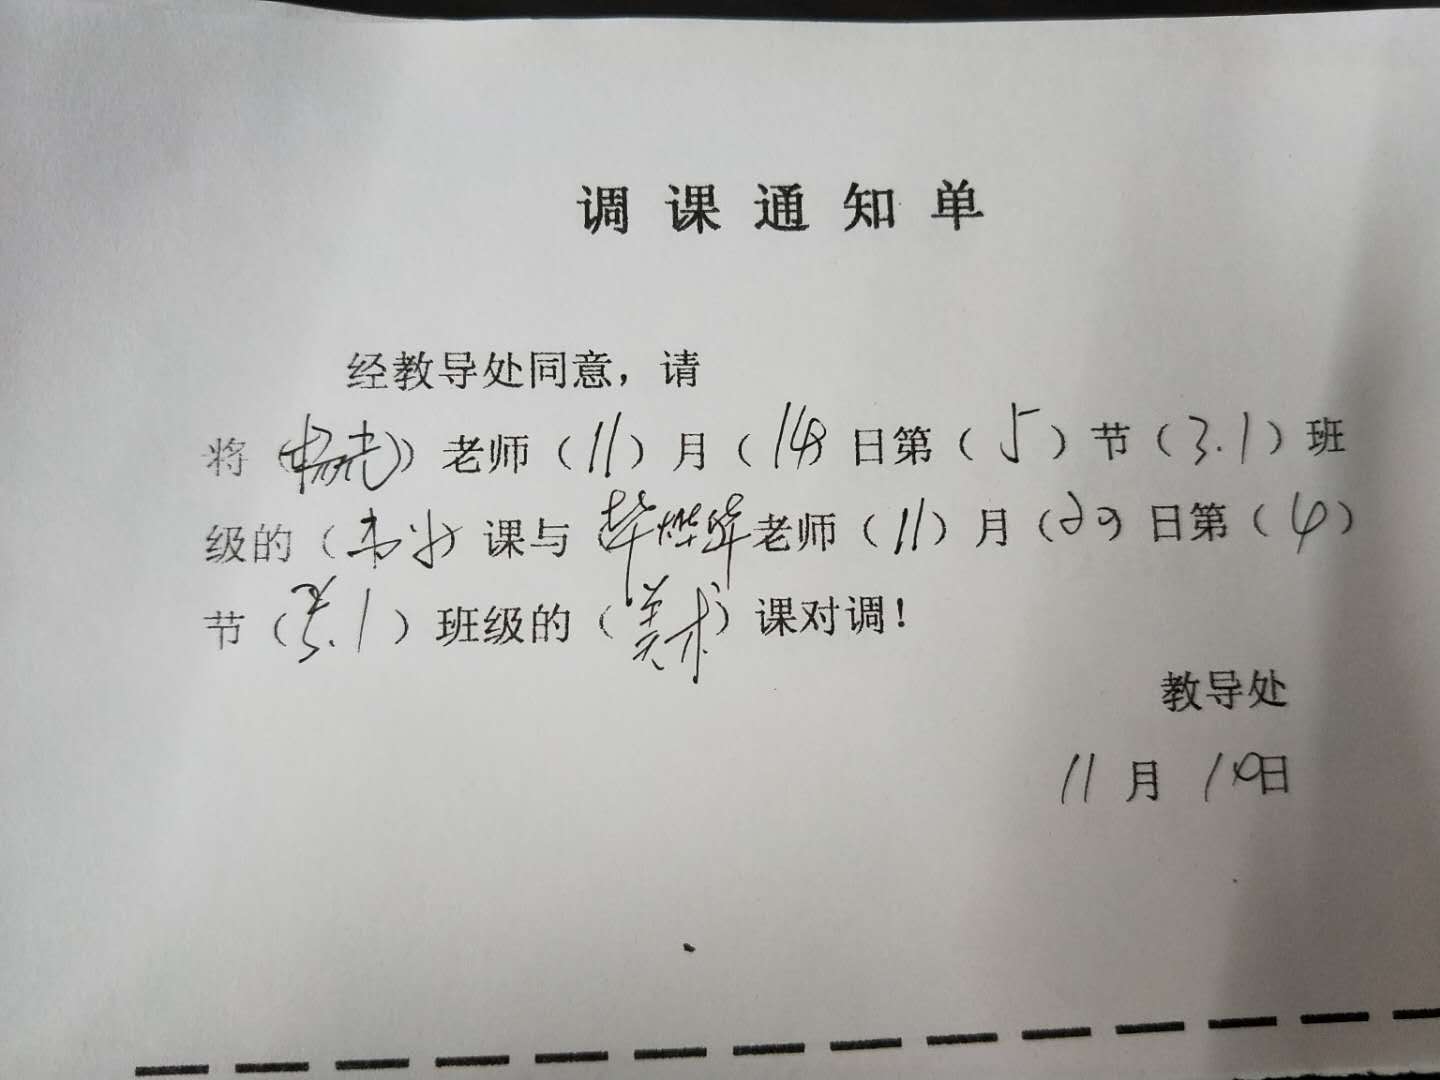 调课通知单
经教导处同意，请
将（ ）老师（11）月（ 日第（5）节（3.1）班
级的（ ）课与 老师（11）月（ ）日第（4）
节（3.1）班级的（美术）课对调！
教导处
11月 日